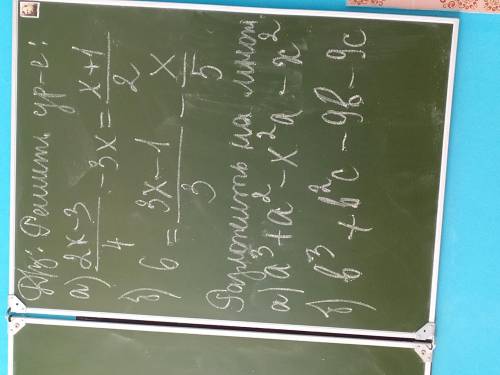 Д/з: Решить ур-е:
а) (2x-3)/4 - 3x = (x+1)/2
б) 6 = (3x-1)/3 - x/5
Разложить на множ.
а) a³+a²-x²a-x²
б) b³+b²c-9b-9c